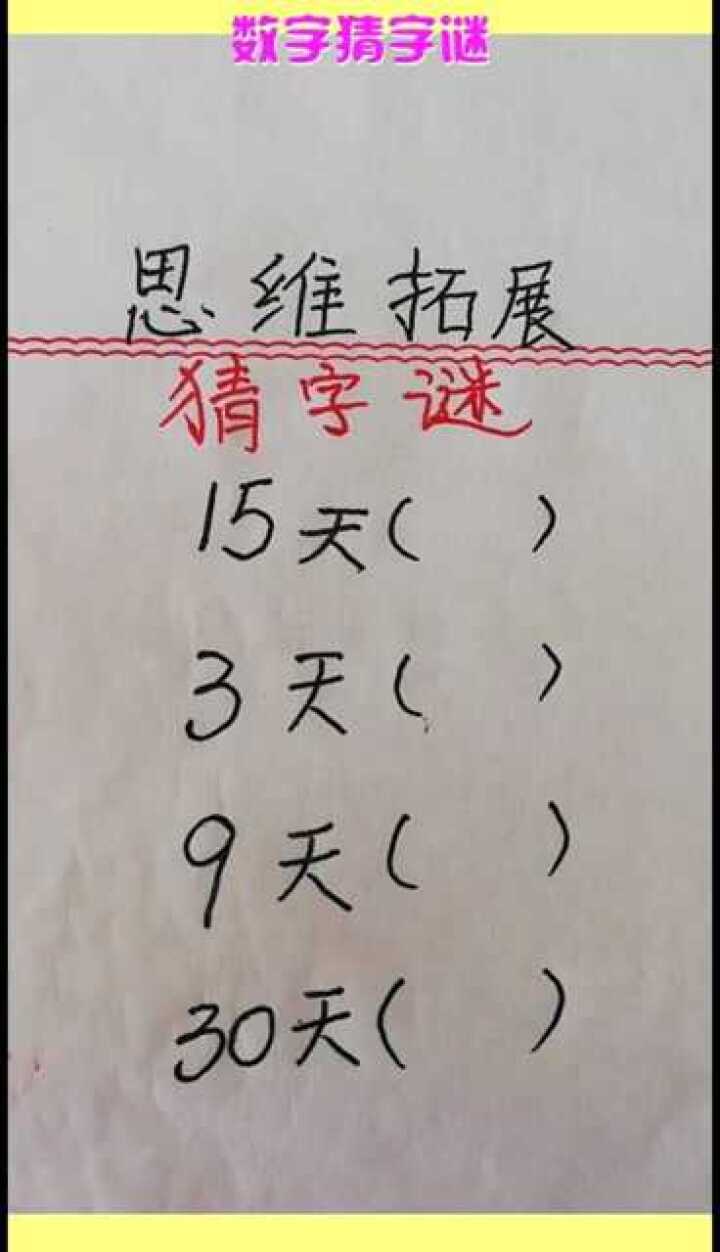 数字猜字谜
思维拓展
猜字谜
15天( )
3天( )
9天( )
30天( )